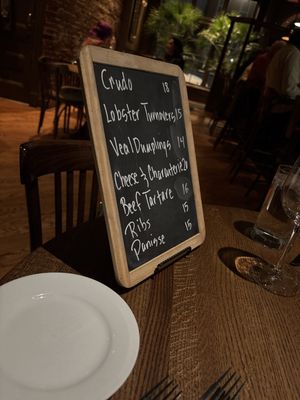 Crudo 18
Lobster Turnovers 15
Veal Dumplings 14
Cheese & Charcuterie 20
Beef Tartare 16
Ribs 15
Panisse 15